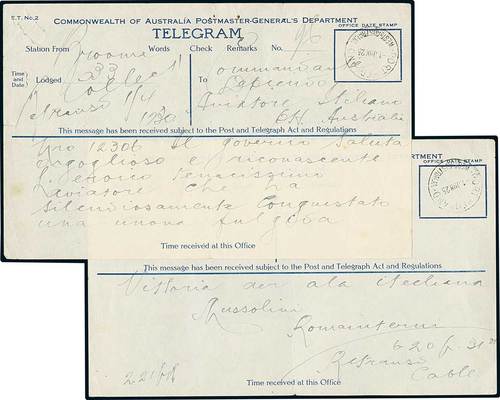 E.T. No.2
COMMONWEALTH OF AUSTRALIA POSTMASTER-GENERAL'S DEPARTMENT
OFFICE DATE STAMP
TELEGRAM
Station From Words Check Remarks No.
Broome
Time and Date
Lodged
33
College
Commandan
Aviatore Italiano
1230
Australia
This message has been received subject to the Post and Telegraph Act and Regulations
12306 Il governo saluta
orgoglioso e riconoscente
l eroico tenacissimo
aviatore che ha
silenziosamente conquistato
una nuova fulgida
Time received at this Office
PARTMENT
OFFICE DATE STAMP
This message has been received subject to the Post and Telegraph Act and Regulations
Vittoria italiana
Mussolini
Romainterni
620p 31st
Cable
Time received at this Office